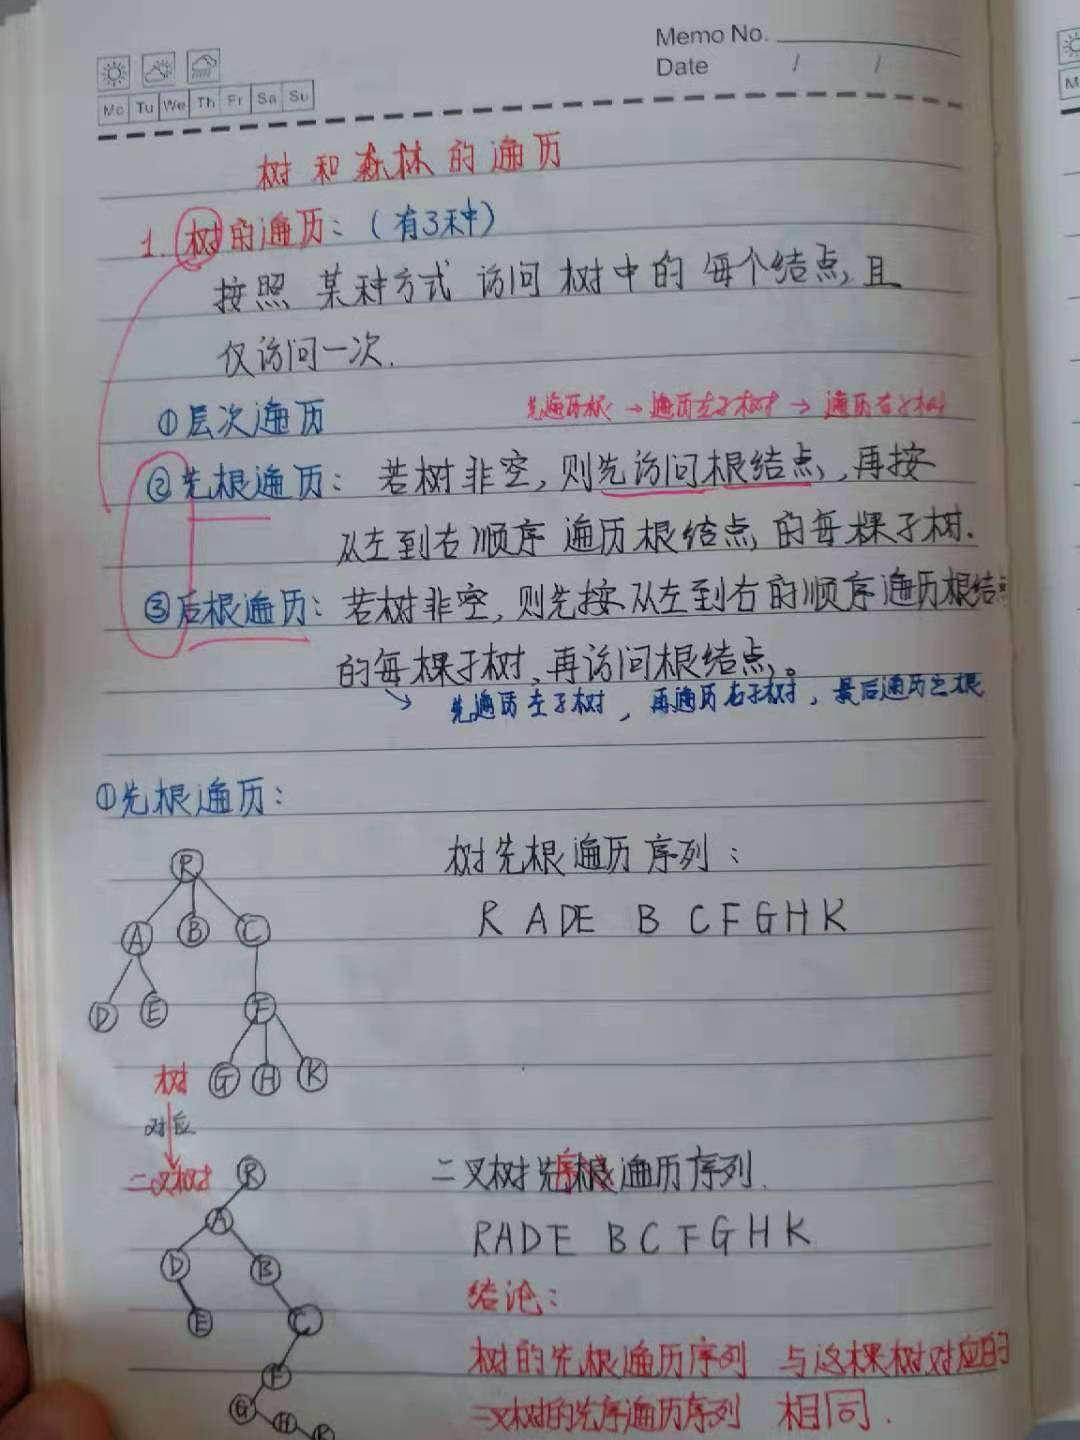 Memo No.
Date / /
Mo Tu We Th Fr Sa Su
树和森林的遍历
1. 树的遍历：（有3种）
按照某种方式访问树中的每个结点，且
仅访问一次.
①层次遍历
先遍历根→遍历左子树→遍历右子树
②先根遍历：若树非空，则先访问根结点，再按
从左到右顺序遍历根结点的每棵子树.
③后根遍历：若树非空，则先按从左到右的顺序遍历根结点
的每棵子树，再访问根结点。
先遍历左子树，再遍历右子树，最后遍历根
①先根遍历：
树先根遍历序列：
R ADE B C F G H K
R
A B C
D E F
G H K
树
对应
二叉树
二叉树先序遍历序列.
RADE B C F G H K
R
A
D B
E C
F
G H K
结论：
树的先根遍历序列 与这棵树对应的
二叉树的先序遍历序列 相同.